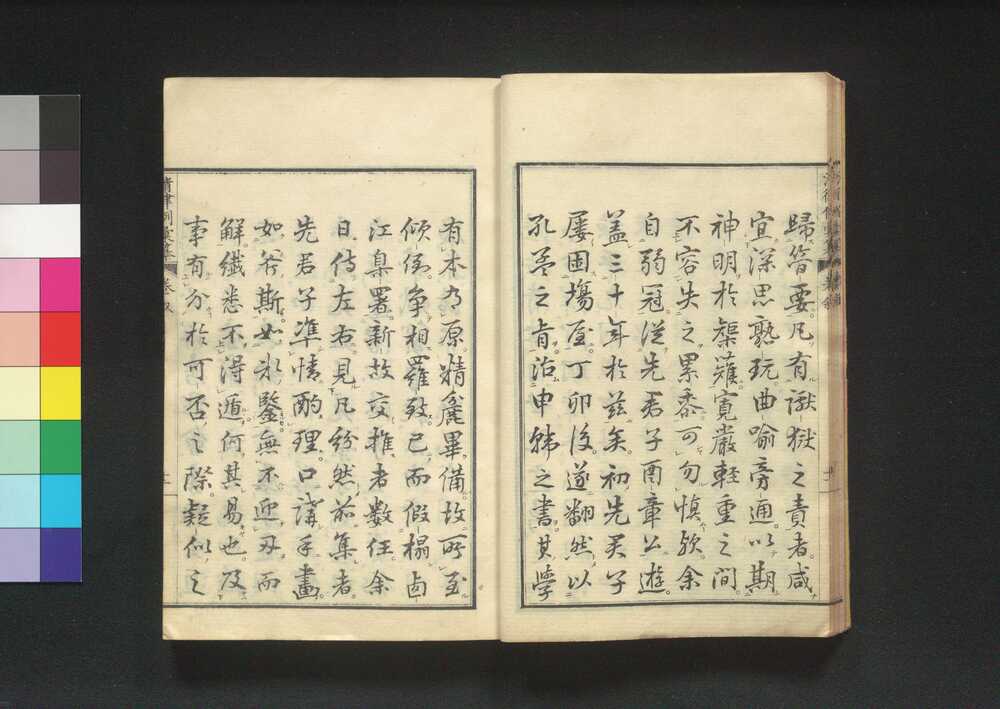 歸管要凡有讞獄之責者咸
宜深思熟玩曲喻旁通以期
神明於榘矱寬嚴輕重之間
不容失之累黍可勿慎歟余
自弱冠從先君子酉章公遊
蓋三十年於茲矣初先君子
屢困塲屋丁卯後遂翻然以
孔孟之肯治申韓之書其學
有本乃原精麄畢備故所至
傾倒爭相羅致已而假榻鹵
江臬署新故交推者數任余
日侍左右見凡紛然前集者
先君子準情酌理口講手畫
如斧斯如氷鑒無不迎刃而
解纖悉不得遁何其易也及
事有分於可否之際疑似之